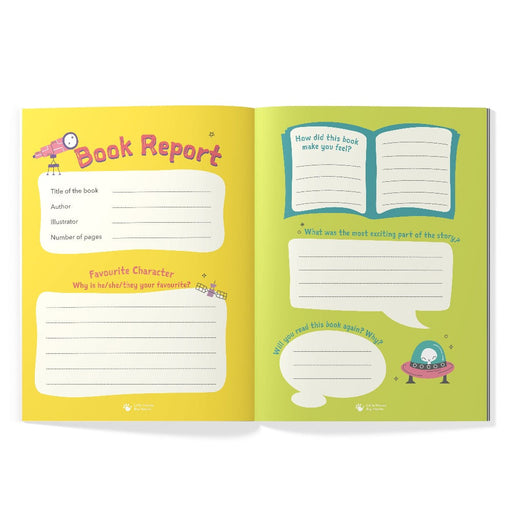 Book Report
Title of the book
Author
Illustrator
Number of pages
Favourite Character
Why is he/she/they your favourite?
How did this book
make you feel?
What was the most exciting part of the story
Will you read this book again? Why?